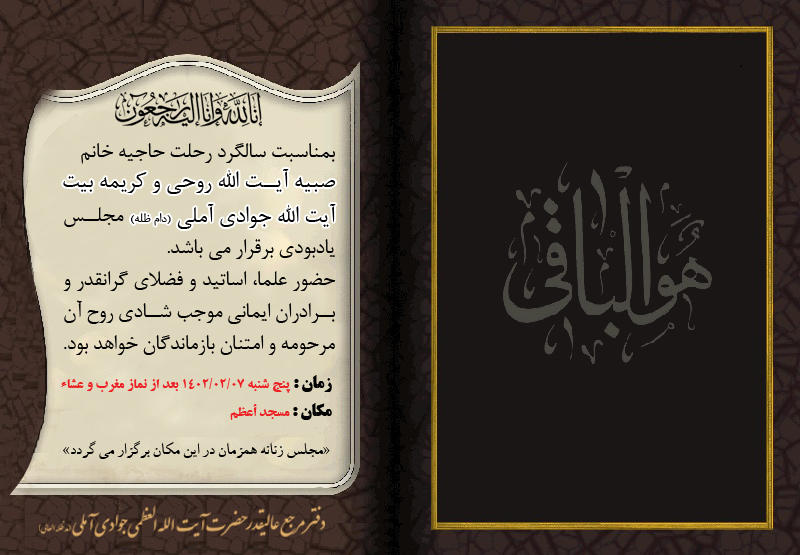 هوالباقی
انا لله و انا الیه راجعون
بمناسبت سالگرد رحلت حاجیه خانم
صبیه آیــت الله روحی و کریمه بیت
آیت الله جوادی آملی (دام ظله) مجلــس
یادبودی برقرار می باشد.
حضور علما، اساتید و فضلای گرانقدر و
بــرادران ایمانی موجب شــادی روح آن
مرحومه و امتنان بازماندگان خواهد بود.
زمان : پنج شنبه ۱۴۰۲/۰۲/۰۷ بعد از نماز مغرب و عشاء
مکان : مسجد أعظم
«مجلس زنانه همزمان در این مکان برگزار می گردد»
دفتر مرجع عالیقدر حضرت آیت الله العظمی جوادی آملی (مد ظله العالی)